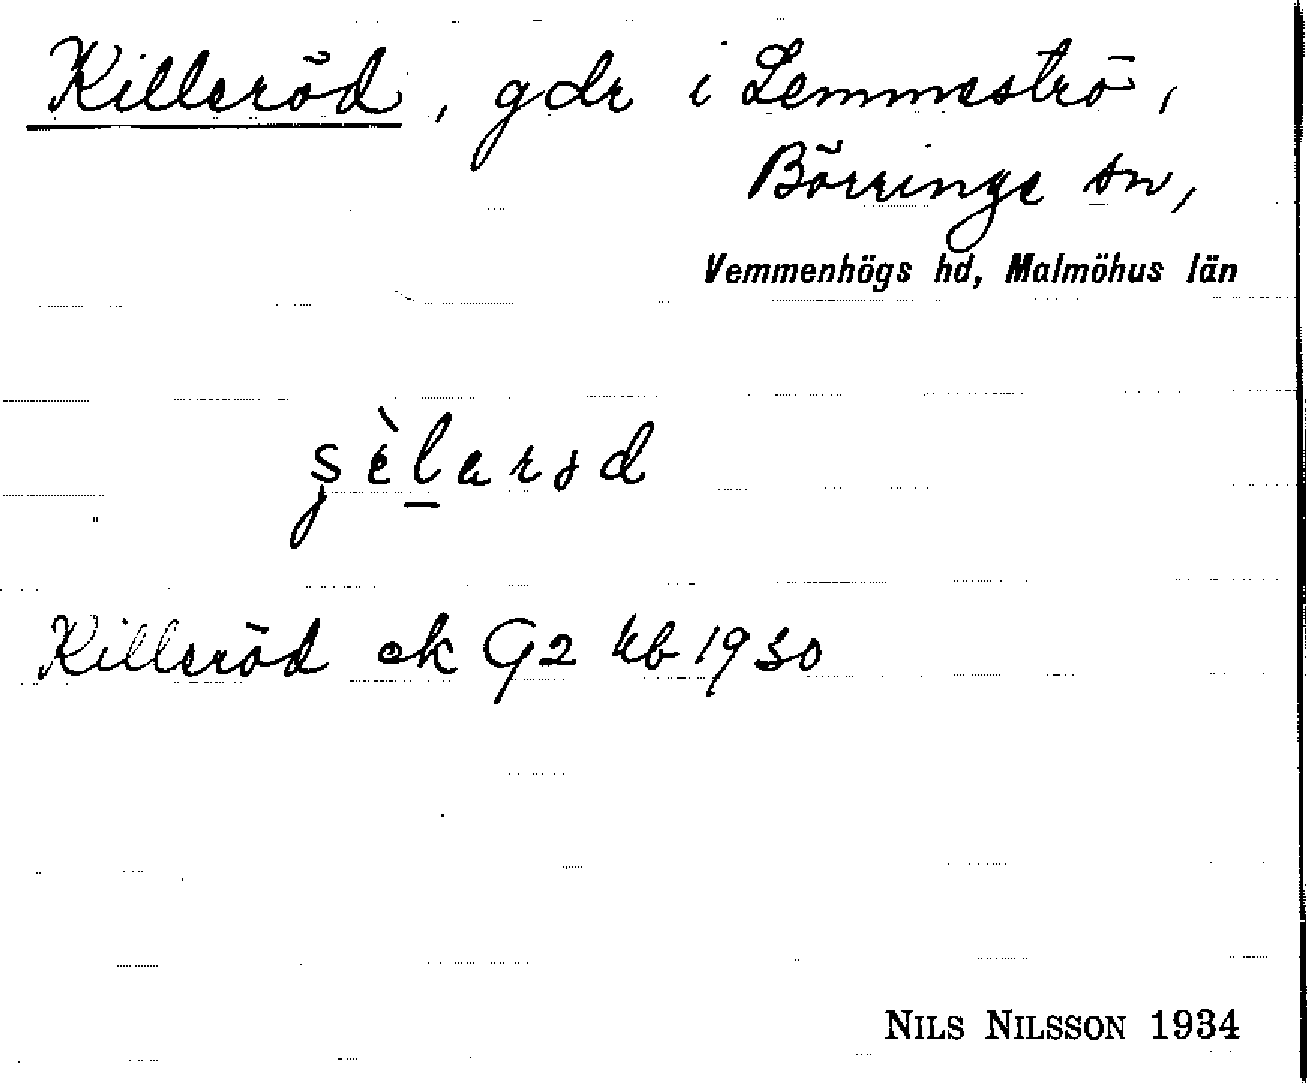 Killeröd, gdr i Lemmeströ,
Börringe sn,
Vemmenhögs hd, Malmöhus län
Killeröd ek G2 kb 1930
NILS NILSSON 1934